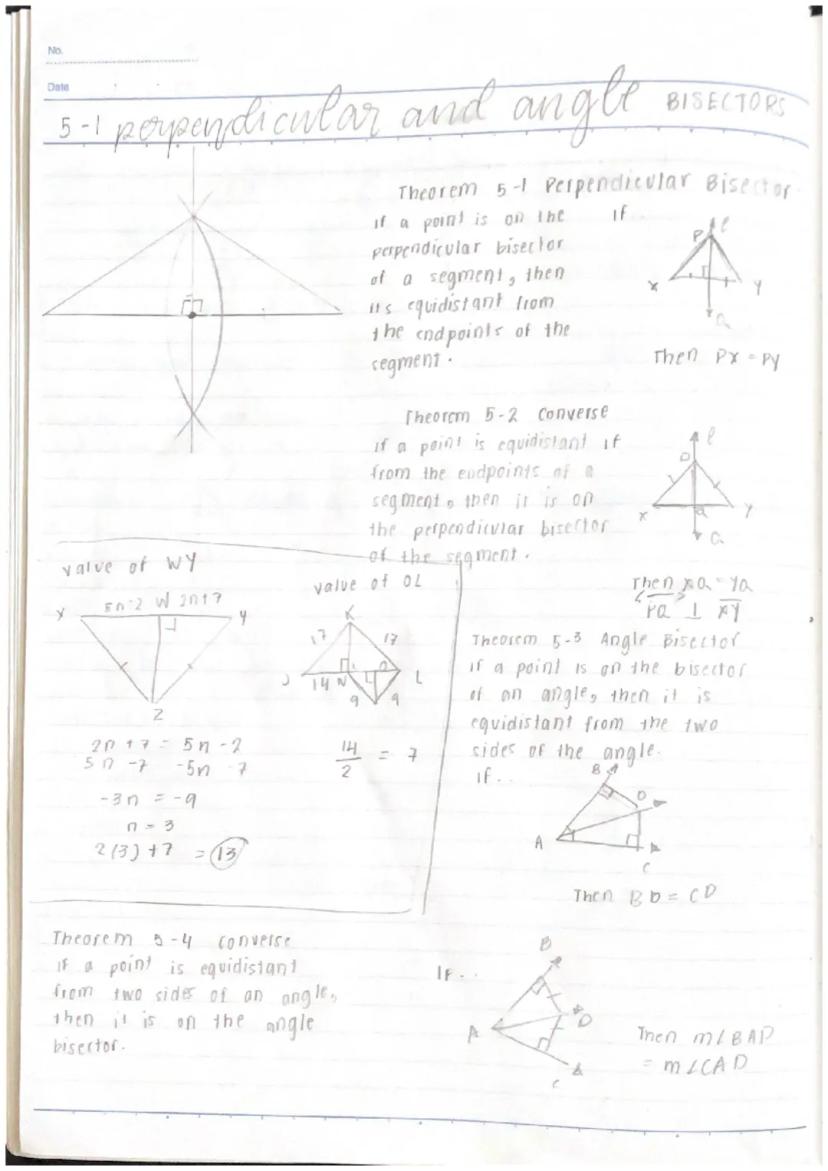 No.
Date
5-1 perpendicular and angle BISECTORS
Theorem 5-1 Perpendicular Bisector
if a point is on the
perpendicular bisector
of a segment, then
its equidistant from
the endpoints of the
segment.
If
P l
X Y
Q
Then PX = PY
Theorem 5-2 Converse
if a point is equidistant
from the endpoints of a
segment, then it is on
the perpendicular bisector
of the segment.
if
l
X Q Y
Q
Then XQ = YQ
PQ ⊥ XY
value of WY
X 5n-2 W 2n+7 Y
Z
2n +7 = 5n -2
5n -7 -5n -7
-3n = -9
n = 3
2(3) +7 = 13
value of OL
K
17 17
J 14 N O L
9 9
14/2 = 7
Theorem 5-3 Angle Bisector
if a point is on the bisector
of an angle, then it is
equidistant from the two
sides of the angle.
if..
B
D
A
C
Then BD = CD
Theorem 5-4 converse
if a point is equidistant
from two sides of an angle,
then it is on the angle
bisector.
If..
B
A D
C
Then m∠BAD
= m∠CAD